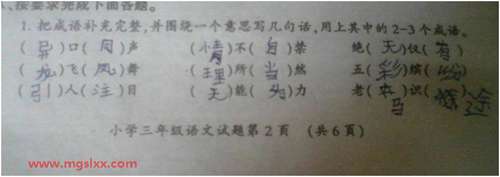 、按要求完成下面各题。
1. 把成语补充完整,并围绕一个意思写几句话,用上其中的2-3个成语。
(异)口(同)声 (情)不(自)禁 绝(无)仅(有)
(龙)飞(凤)舞 (理)所(当)然 五(彩)缤(纷)
(引)人(注)目 (无)能(为)力 老(马)识(途)
小学三年级语文试题第2页 (共6页)
www.mgslxx.com